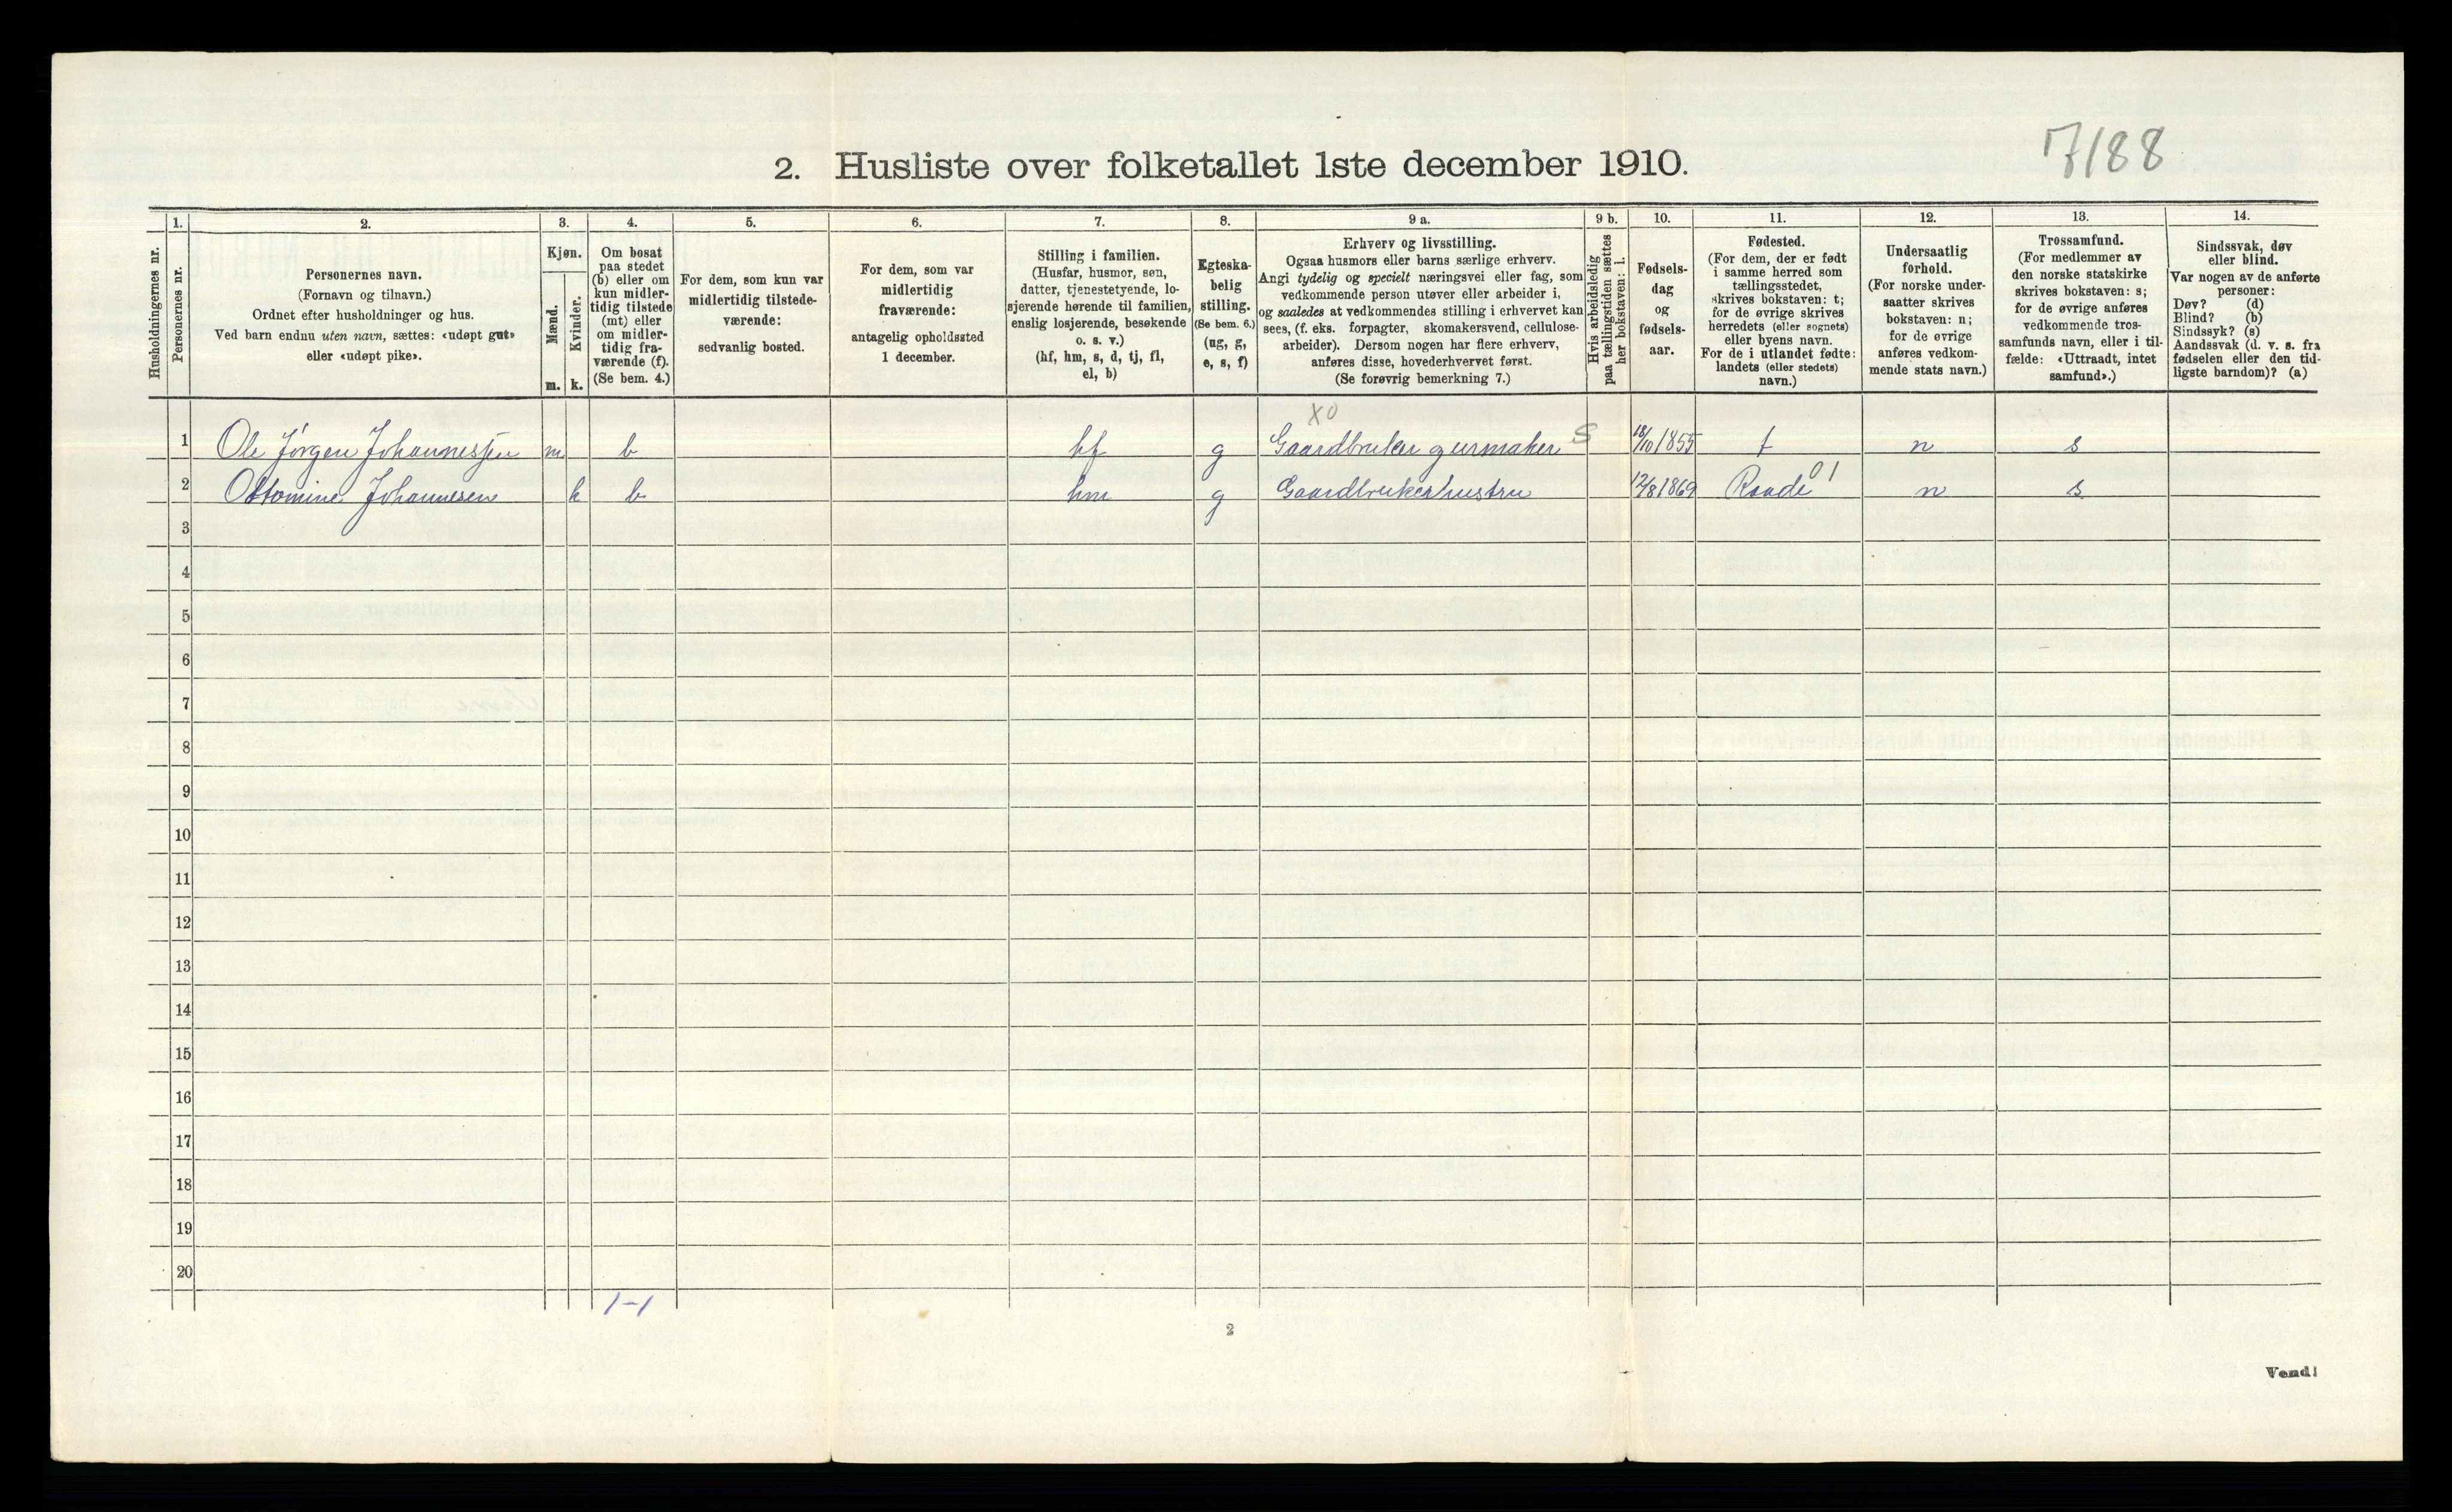 7/88
2. Husliste over folketallet 1ste december 1910.
1. 2. 3. 4. 5. 6. 7. 8. 9 a. 9 b. 10. 11. 12. 13. 14.
Husholdningernes nr.
Personernes nr.
Personernes navn.
(Fornavn og tilnavn.)
Ordnet efter husholdninger og hus.
Ved barn endnu uten navn, sættes: «udøpt gut»
eller «udøpt pike».
Kjøn.
Mænd.
Kvinder.
m. k.
Om bosat
paa stedet
(b) eller om
kun midler-
tidig tilstede
(mt) eller
om midler-
tidig fra-
værende (f).
(Se bem. 4.)
For dem, som kun var
midlertidig tilstede-
værende:
sedvanlig bosted.
For dem, som var
midlertidig
fraværende:
antagelig opholdssted
1 december.
Stilling i familien.
(Husfar, husmor, søn,
datter, tjenestetyende, lo-
sjerende hørende til familien,
enslig losjerende, besøkende
o. s. v.)
(hf, hm, s, d, tj, fl,
el, b)
Egteska-
belig
stilling.
(Se bem. 6.)
(ug, g,
e, s, f)
Erhverv og livsstilling.
Ogsaa husmors eller barns særlige erhverv.
Angi tydelig og specielt næringsvei eller fag, som
vedkommende person utøver eller arbeider i,
og saaledes at vedkommendes stilling i erhvervet kan
sees, (f. eks. forpagter, skomakersvend, cellulose-
arbeider). Dersom nogen har flere erhverv,
anføres disse, hovederhvervet først.
(Se forøvrig bemerkning 7.)
Hvis arbeidsledig
paa tællingstiden sættes
her bokstaven: l.
Fødsels-
dag
og
fødsels-
aar.
Fødested.
(For dem, der er født
i samme herred som
tællingsstedet,
skrives bokstaven: t;
for de øvrige skrives
herredets (eller sognets)
eller byens navn.
For de i utlandet fødte:
landets (eller stedets)
navn.)
Undersaatlig
forhold.
(For norske under-
saatter skrives
bokstaven: n;
for de øvrige
anføres vedkom-
mende stats navn.)
Trossamfund.
(For medlemmer av
den norske statskirke
skrives bokstaven: s;
for de øvrige anføres
vedkommende tros-
samfunds navn, eller i til-
fælde: «Uttraadt, intet
samfund».)
Sindssvak, døv
eller blind.
Var nogen av de anførte
personer:
Døv? (d)
Blind? (b)
Sindssyk? (s)
Aandssvak (d. v. s. fra
fødselen eller den tid-
ligste barndom)? (a)
X0
1 Ole Jørgen Johannessen m b hf g Gaardbruker g urmaker S 18/10 1855 t n s
2 Ottomine Johannesen k b hm g Gaardbrukerhustru 12/8 1869 Raade 01 n s
3
4
5
6
7
8
9
10
11
12
13
14
15
16
17
18
19
20
1-1
2
Vend!